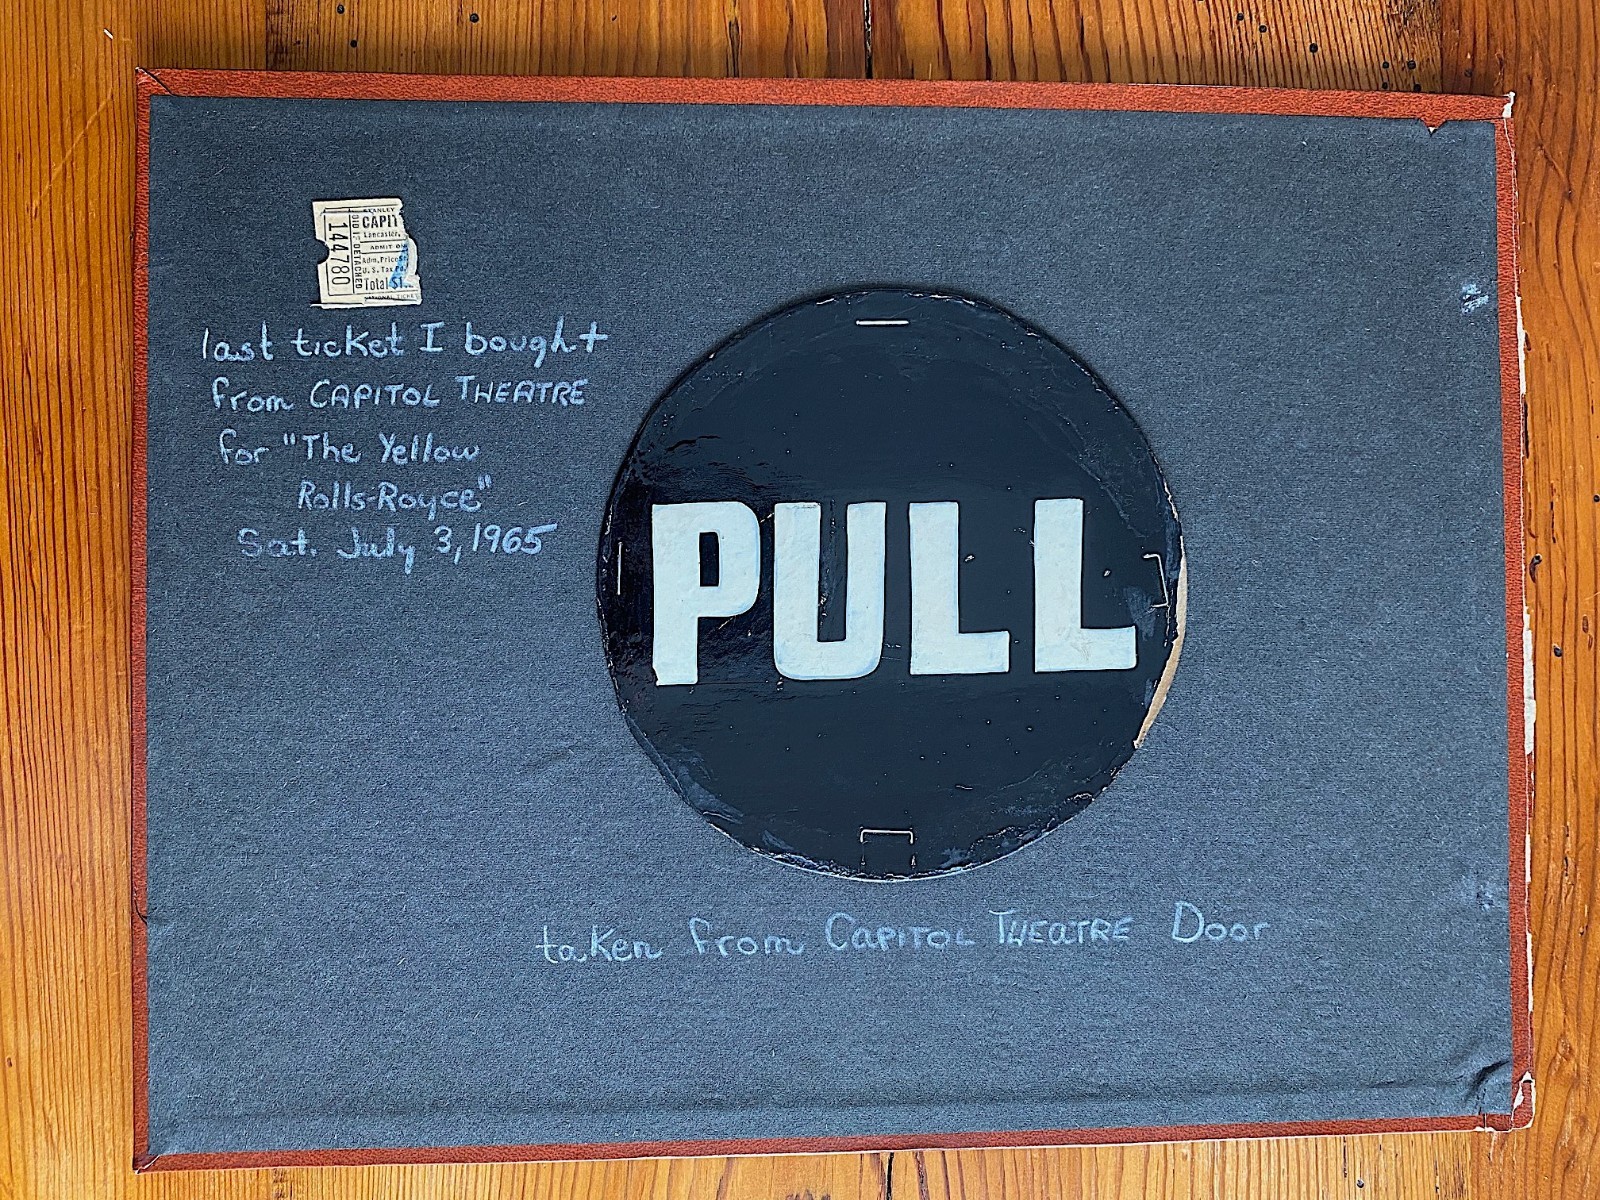 STANLEY
CAPIT
Lancaster,
ADMIT ON
Adm. Price
U. S. Tax Pd.
Total $1.
NATIONAL TICKET
144780
DETACHED
last ticket I bought
from CAPITOL THEATRE
for "The Yellow
Rolls-Royce"
Sat. July 3, 1965
PULL
taken from CAPITOL THEATRE Door